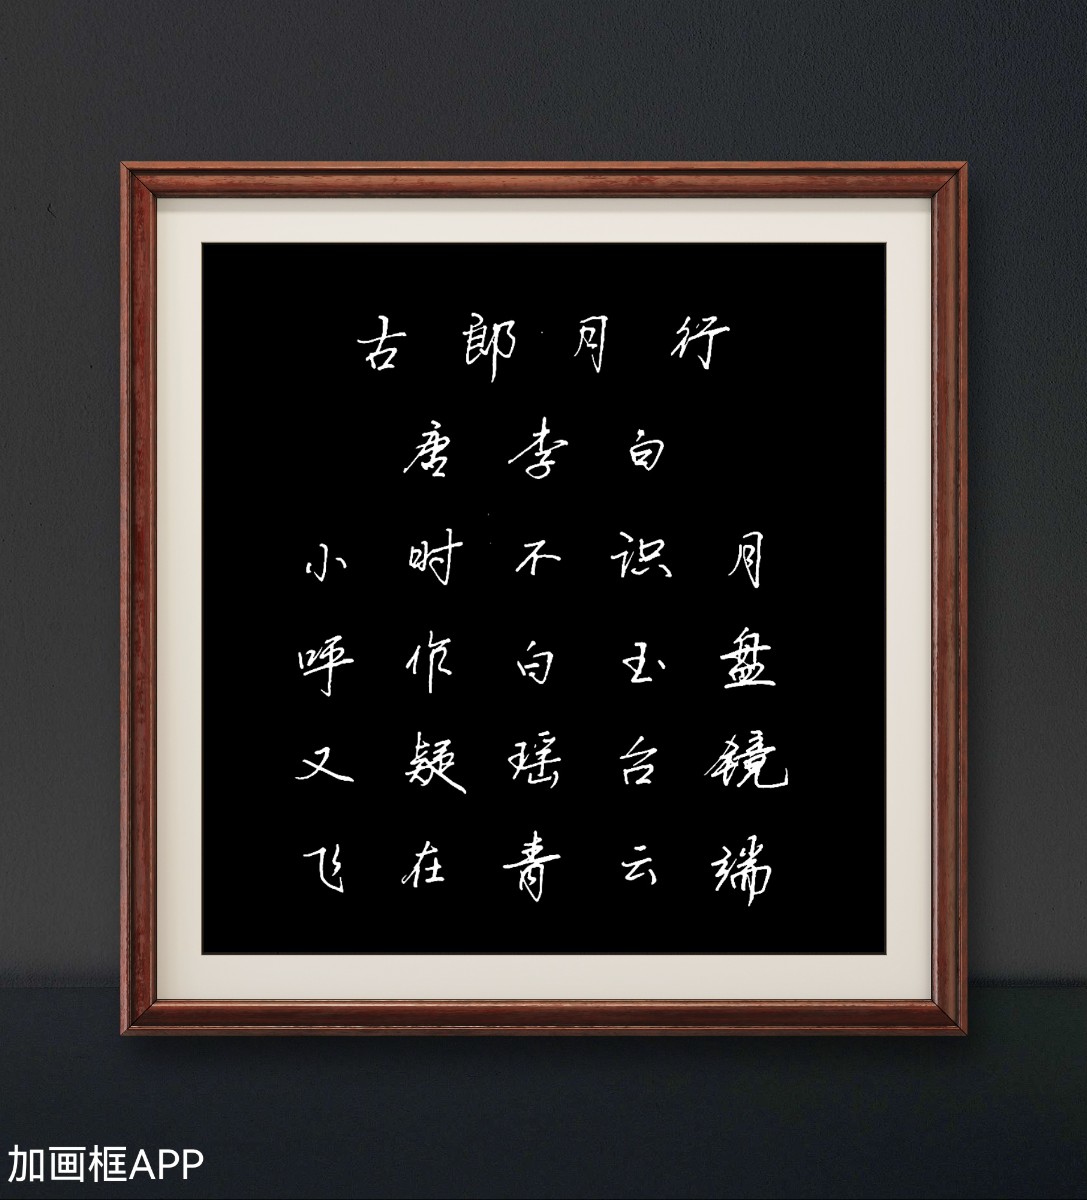 古郎月行
唐李白
小时不识月
呼作白玉盘
又疑瑶台镜
飞在青云端
加画框APP